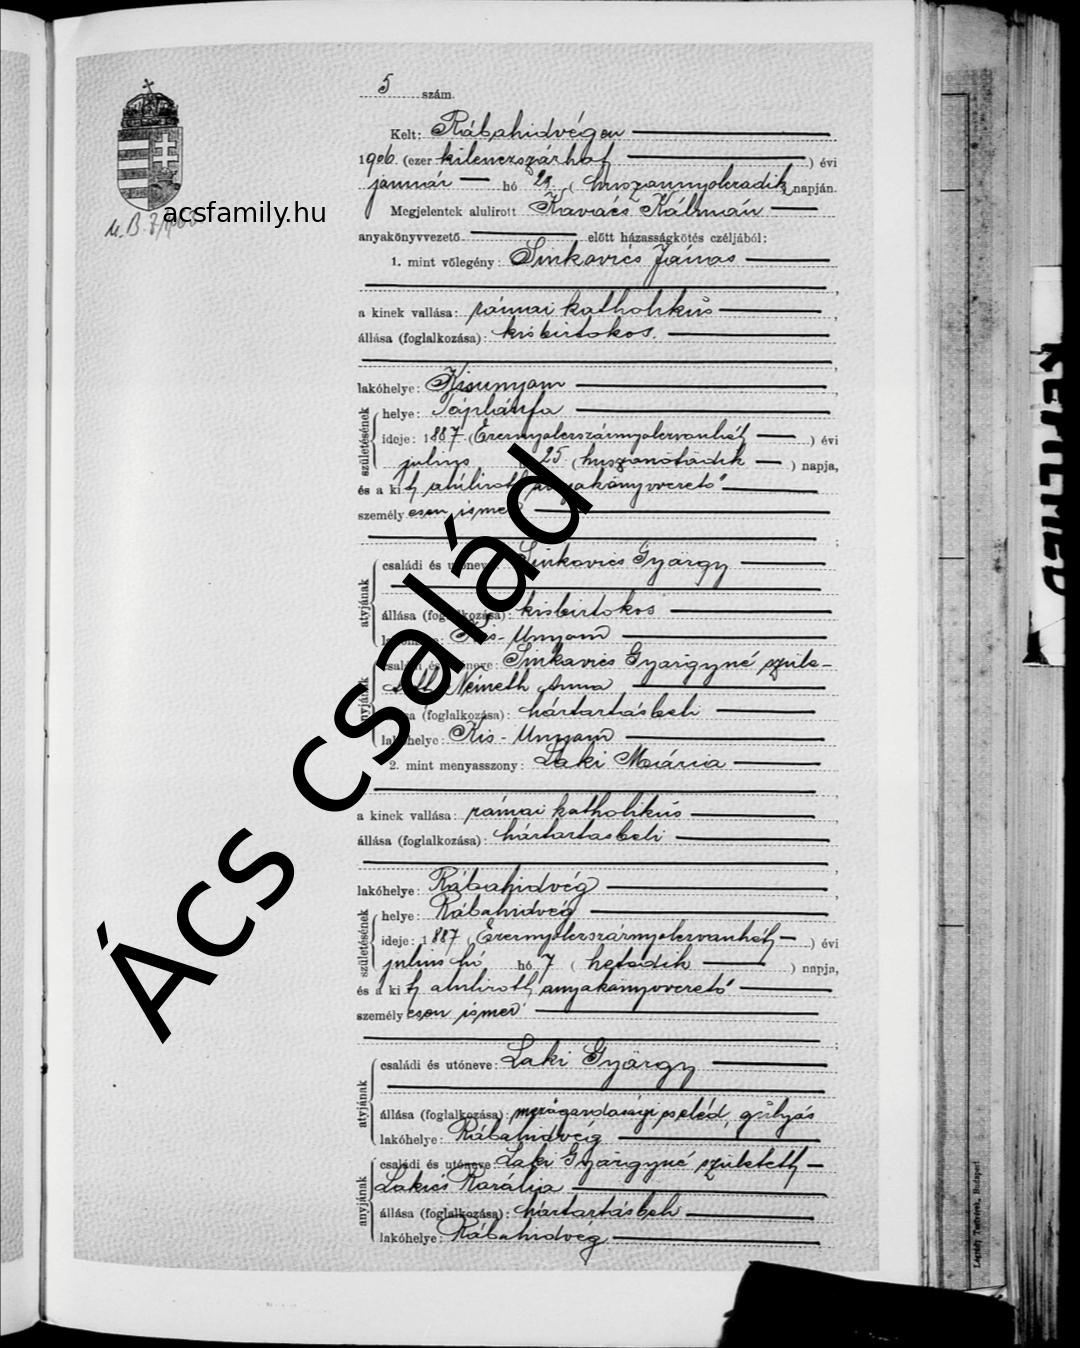 5 szám.
Kelt: Rábahidvégen
1906. (ezer kilenczszázhat ) évi
január hó 28 ( huszonnyolczadik ) napján.
acsfamily.hu
Megjelentek alulirott Kovács Kálmán
anyakönyvvezető előtt házasságkötés czéljából:
1. mint vőlegény: Sinkovics János
a kinek vallása: római katholikus
állása (foglalkozása): kisbirtokos.
lakóhelye: Kisunyom
születésének
helye: Táplánfa
ideje: 1887 (Ezernyolczszáznyolczvanhét ) évi
julius hó 25 ( huszonötödik ) napja,
és a kit alulirott anyakönyvvezető
személyesen ismer
Ács család
atyjának
családi és utóneve: Sinkovics György
állása (foglalkozása): kisbirtokos
lakóhelye: Kis-Unyom
anyjának
családi és utóneve: Sinkovics Györgyné szüle-
tett Németh Anna
állása (foglalkozása): háztartásbeli
lakóhelye: Kis-Unyom
2. mint menyasszony: Laki Mária
a kinek vallása: római katholikus
állása (foglalkozása): háztartasbeli
lakóhelye: Rábahidvég
születésének
helye: Rábahidvég
ideje: 1887 (Ezernyolczszáznyolczvanhét ) évi
julius hó hó 7 ( hetedik ) napja,
és a kit alulirott anyakönyvvezető
személyesen ismer
atyjának
családi és utóneve: Laki György
állása (foglalkozása): mezőgazdasági cseléd, gulyás
lakóhelye: Rábahidvég
anyjának
családi és utóneve: Laki Györgyné született
Lakics Rozália
állása (foglalkozása): háztartásbeli
lakóhelye: Rábahidvég
Légrády Testvérek, Budapest